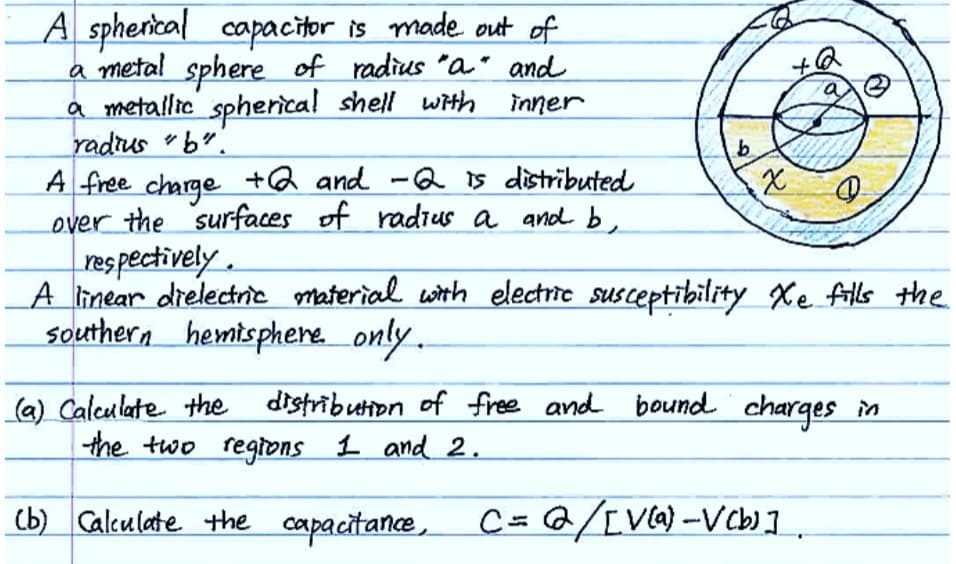 A spherical capacitor is made out of
a metal sphere of radius "a" and
a metallic spherical shell with inner
radius "b".
A free charge +Q and -Q is distributed
over the surfaces of radius a and b,
respectively.
A linear dielectric material with electric susceptibility χe fills the
southern hemisphere only.
(a) Calculate the distribution of free and bound charges in
the two regions 1 and 2.
(b) Calculate the capacitance, C = Q/[V(a) - V(b)].
-Q
+Q
a ②
b
χ ①